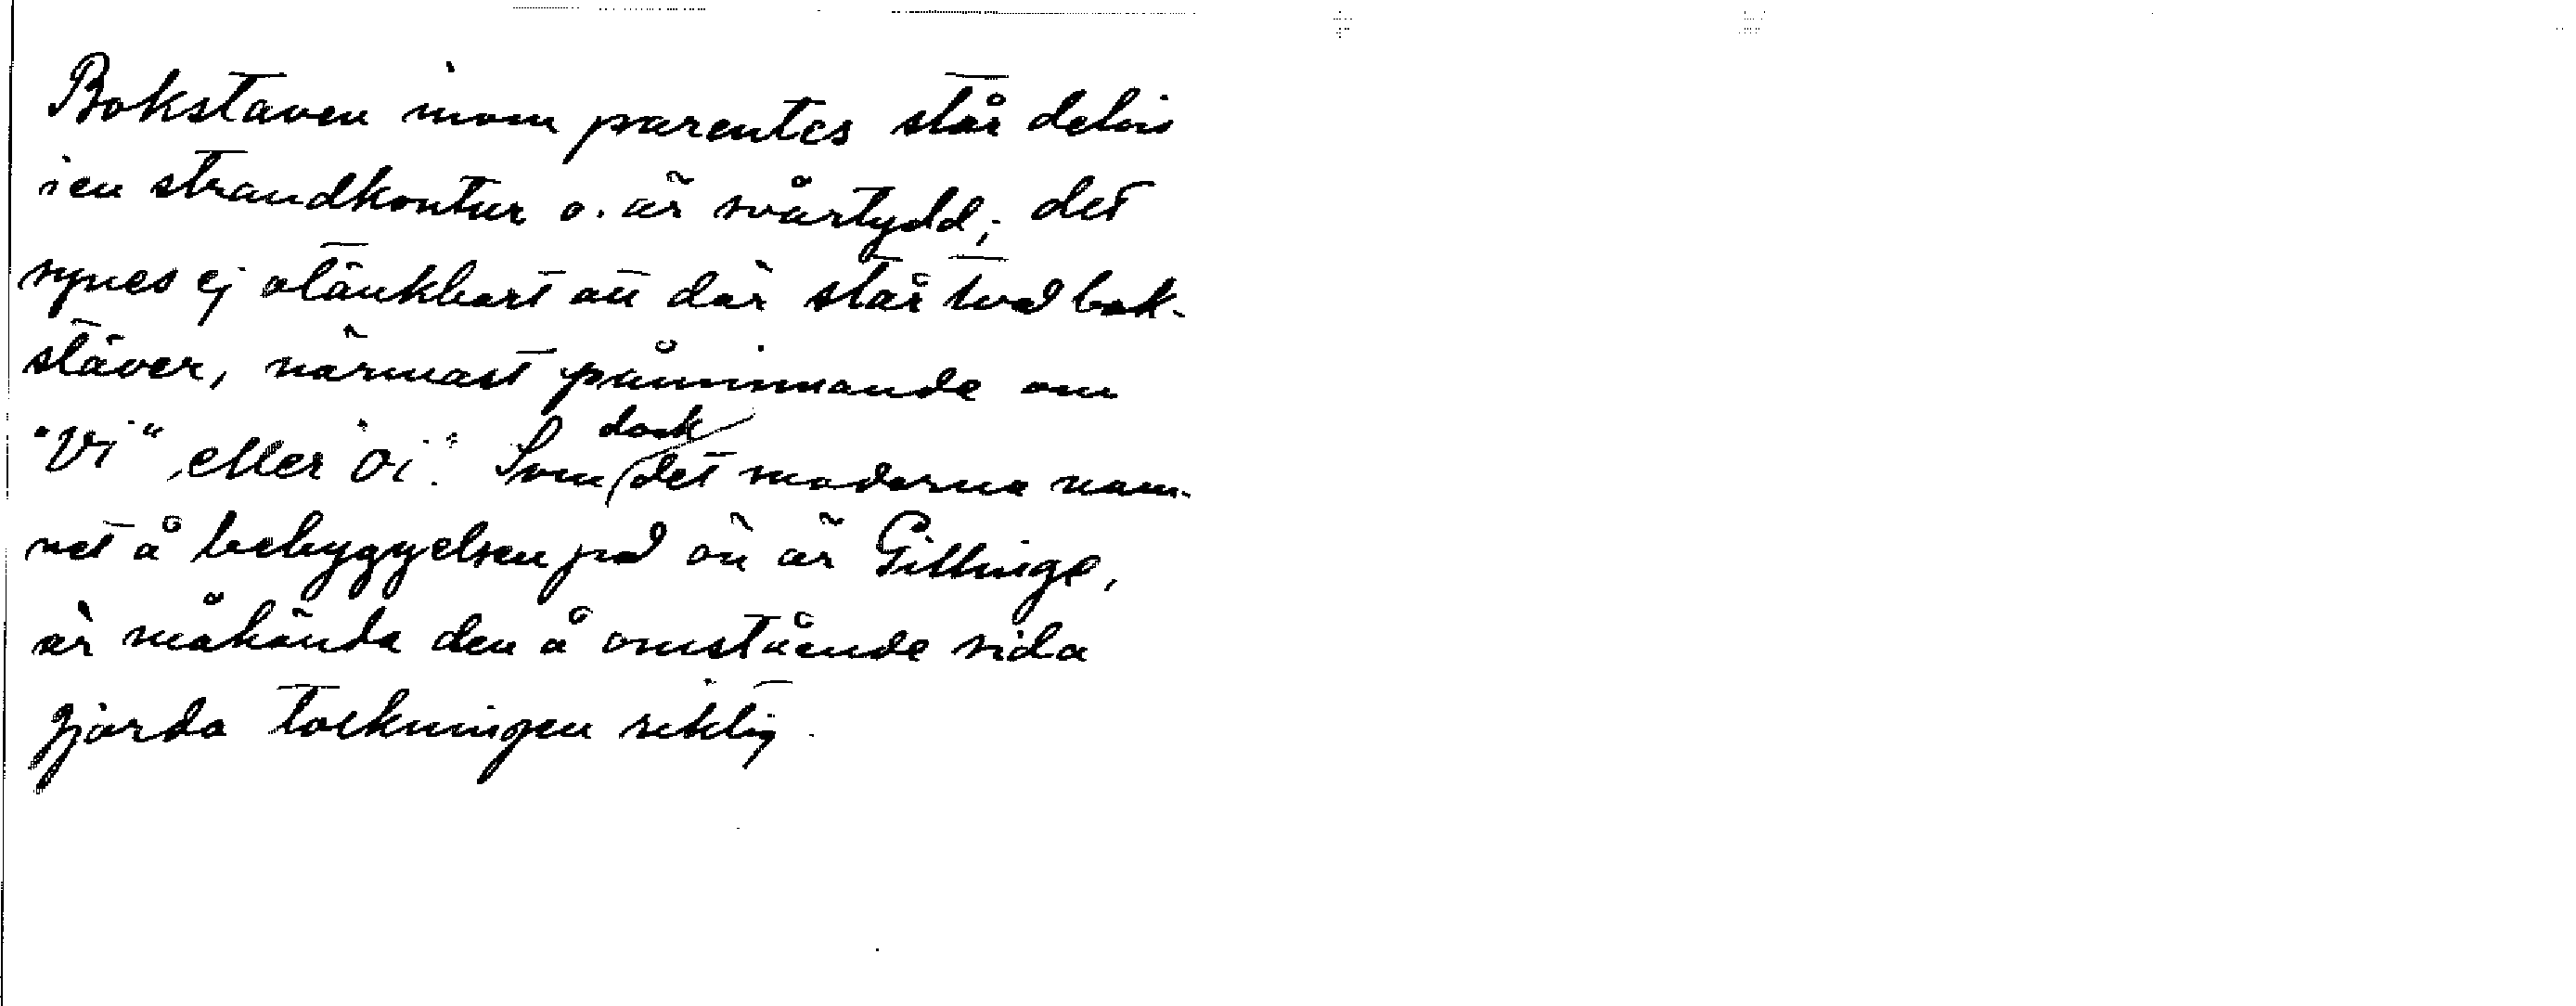 Bokstaven inom parentes står delvis
i en strandkontur o. är svårtydd; det
synes ej otänkbart att där står två bok-
stäver, närmast påminnande om
"Vi" eller "Oi". Som dock det moderna nam-
net å bebyggelsen på ön är Gillinge,
är måhända den å omstående sida
gjorda tolkningen riktig.